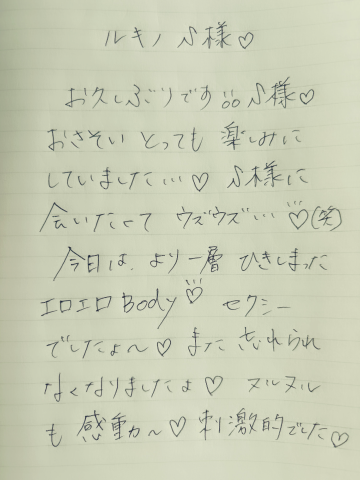 ルキノ S様♡
お久しぶりです!! S様♡
おさそい とっても 楽しみに
していました…♡ S様に
会いたくて ウズウズ…♡(笑)
今日は、より一層 ひきしまった
エロエロBody♡ セクシー
でしたょ〜♡ また 忘れられ
なくなりましたょ♡ ヌルヌル
も 感動〜♡ 刺激的でした♡